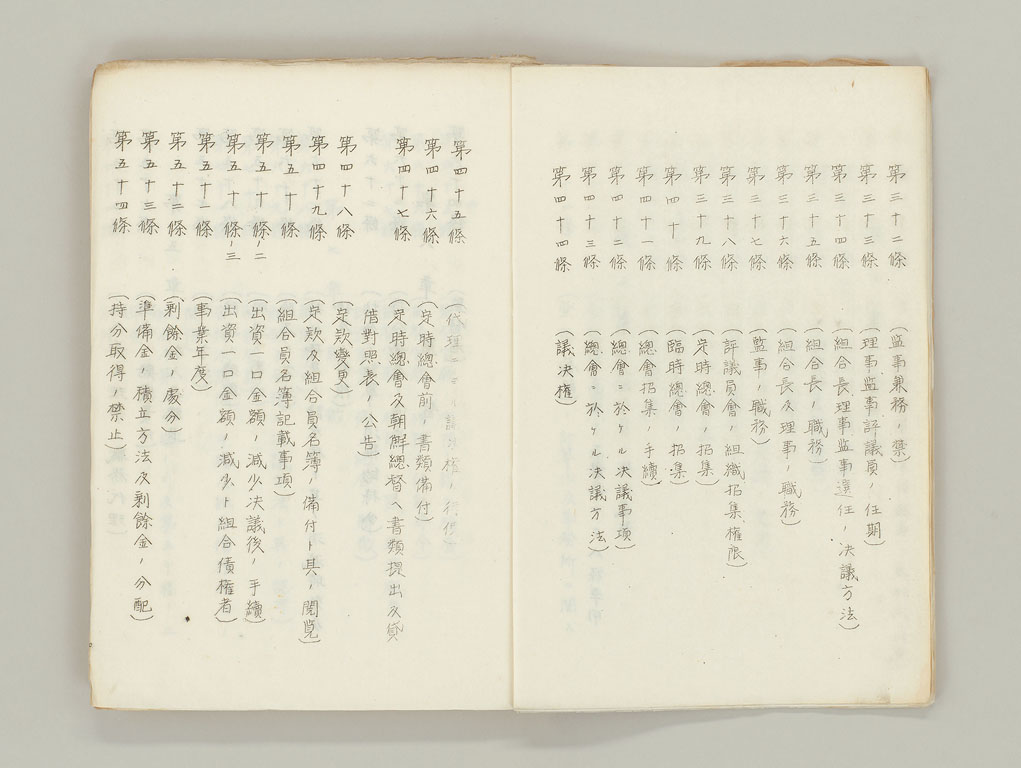 第三十二條 (監事兼務ノ禁)
第三十三條 (理事監事評議員ノ任期)
第三十四條 (組合長理事監事選任ノ決議方法)
第三十五條 (組合長ノ職務)
第三十六條 (組合長及理事ノ職務)
第三十七條 (監事ノ職務)
第三十八條 (評議員會ノ組織招集權限)
第三十九條 (定時總會ノ招集)
第四十條 (臨時總會ノ招集)
第四十一條 (總會招集ノ手續)
第四十二條 (總會ニ於ケル決議事項)
第四十三條 (總會ニ於ケル決議方法)
第四十四條 (議決權)
第四十五條 (代理ニ
第四十六條 (定時總會前ノ書類備付)
第四十七條 (定時總會及朝鮮總督ヘ書類提出及貸
借對照表ノ公告)
第四十八條 (定款變更)
第四十九條 (定款及組合員名簿ノ備付ト其ノ閲覧)
第五十條 (組合員名簿記載事項)
第五十條ノ二 (出資一口金額ノ減少決議後ノ手續)
第五十條ノ三 (出資一口金額ノ減少ト組合債權者)
第五十一條 (事業年度)
第五十二條 (剰餘金ノ處分)
第五十三條 (準備金ノ積立方法及剰餘金ノ分配)
第五十四條 (持分取得ノ禁止)